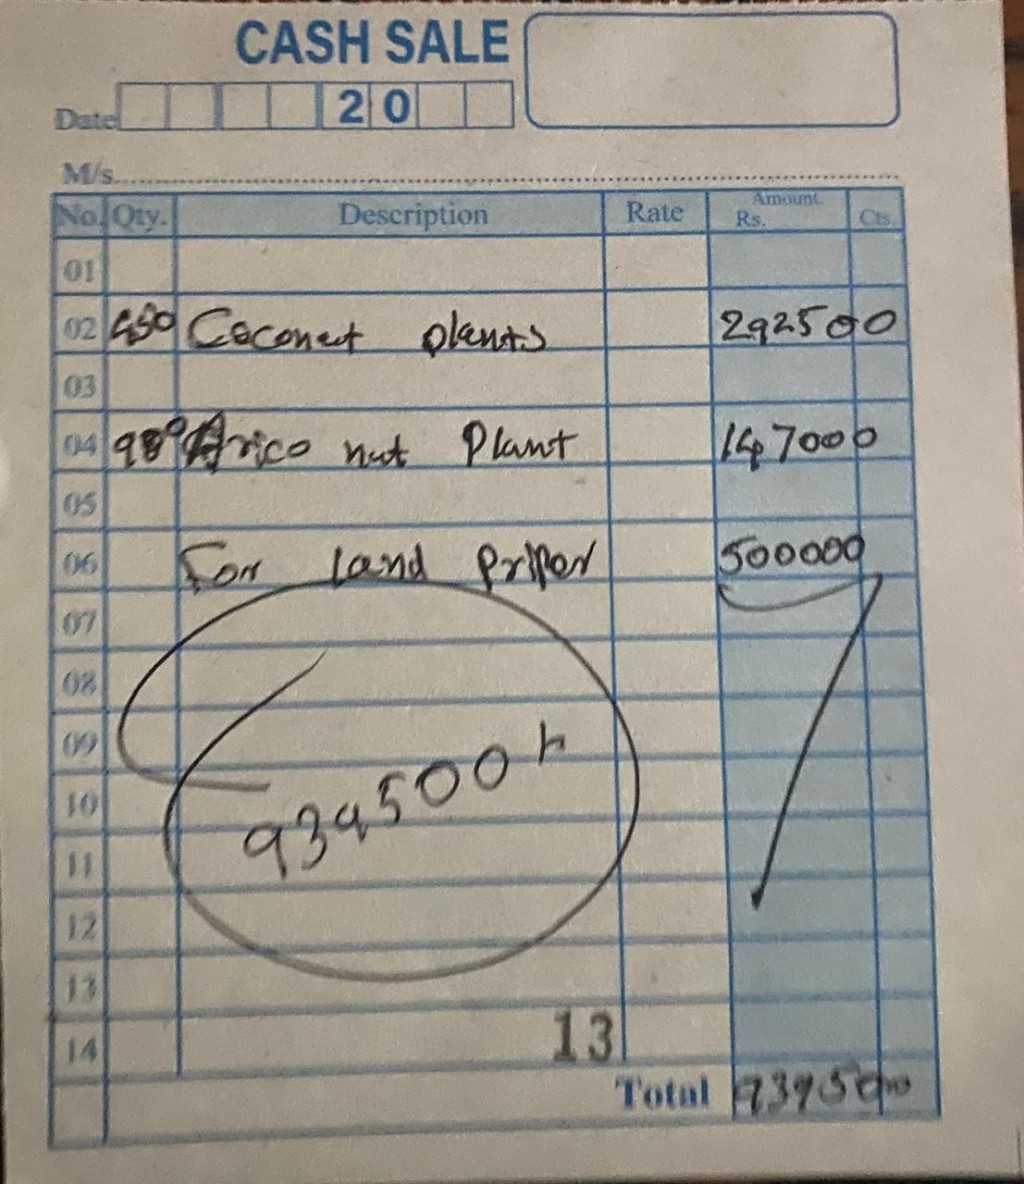 CASH SALE
Date 2 0
M/s
No. Qty. Description Rate Amount Rs. Cts.
01
02 450 Coconut plants 292500
03
04 980 Arico nut Plant 147000
05
06 For land Priper 500000
07
08
09
10
939500
11
12
13
14 13
Total 939500